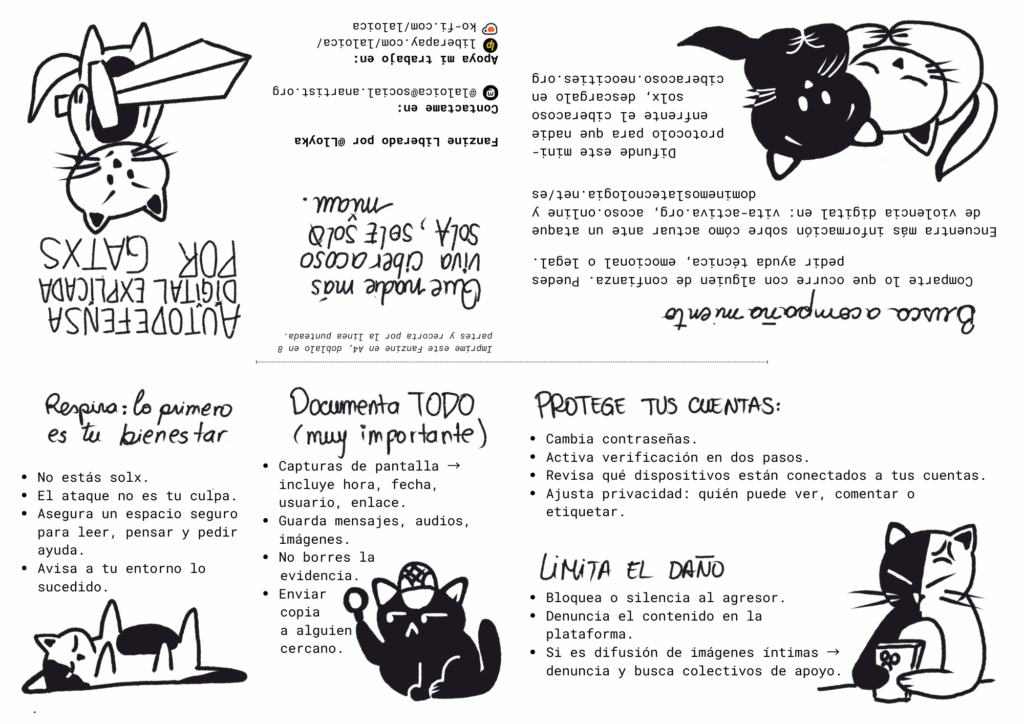 AUTODEFENSA
DIGITAL EXPLICADA
POR GATXS
Respira: lo primero
es tu bienestar
• No estás solx.
• El ataque no es tu culpa.
• Asegura un espacio seguro
para leer, pensar y pedir
ayuda.
• Avisa a tu entorno lo
sucedido.
Documenta TODO
(muy importante)
• Capturas de pantalla →
incluye hora, fecha,
usuario, enlace.
• Guarda mensajes, audios,
imágenes.
• No borres la
evidencia.
• Enviar
copia
a alguien
cercano.
PROTEGE TUS CUENTAS:
• Cambia contraseñas.
• Activa verificación en dos pasos.
• Revisa qué dispositivos están conectados a tus cuentas.
• Ajusta privacidad: quién puede ver, comentar o
etiquetar.
LIMITA EL DAÑO
• Bloquea o silencia al agresor.
• Denuncia el contenido en la
plataforma.
• Si es difusión de imágenes íntimas →
denuncia y busca colectivos de apoyo.
Busca acompañamiento
Comparte lo que ocurre con alguien de confianza. Puedes
pedir ayuda técnica, emocional o legal.
Encuentra más información sobre cómo actuar ante un ataque
de violencia digital en: vita-activa.org, acoso.online y
dominemoslatecnologia.net/es
Difunde este mini-
protocolo para que nadie
enfrente el ciberacoso
solx, descargalo en
ciberacoso.neocities.org
Imprime este Fanzine en A4, doblalo en 8
partes y recorta por la línea punteada.
Que nadie más
viva ciberacoso
SOLA, SOLE SOLO
miau.
Fanzine Liberado por @Lloyka
Contactame en:
@laloica@social.anartist.org
Apoya mi trabajo en:
liberapay.com/laloica/
ko-fi.com/laloica